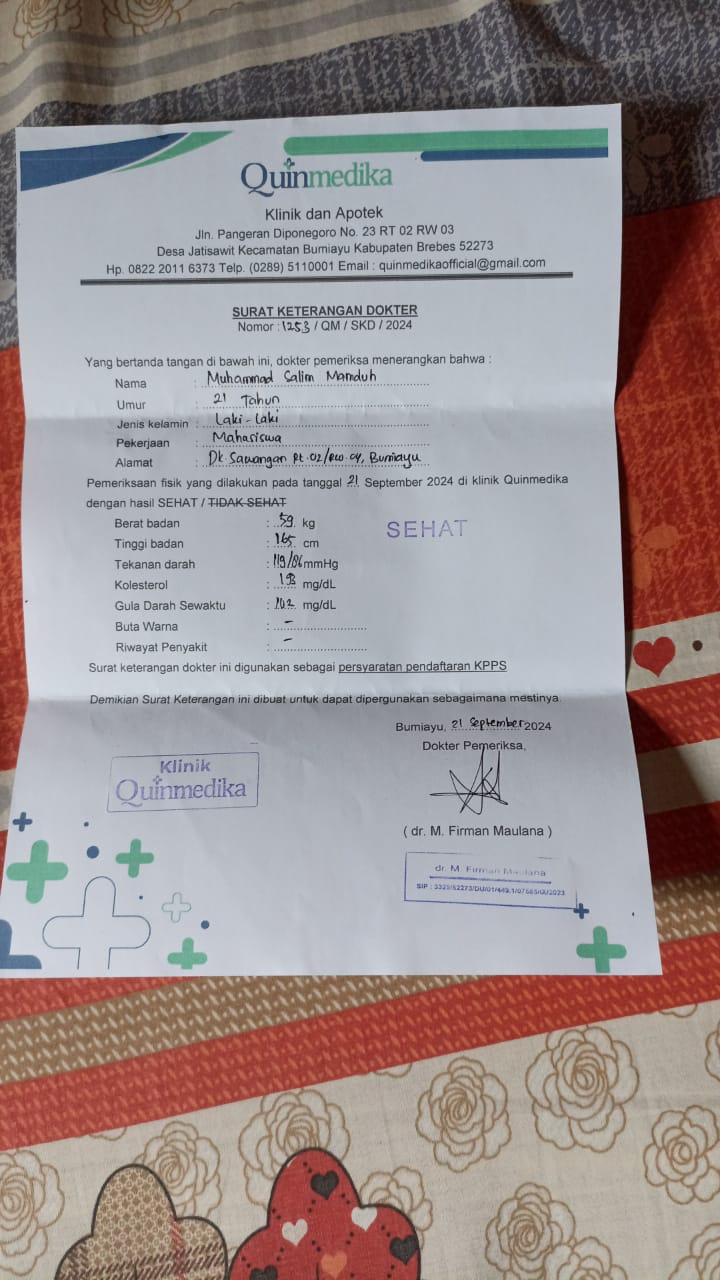 Quinmedika
Klinik dan Apotek
Jln. Pangeran Diponegoro No. 23 RT 02 RW 03
Desa Jatisawit Kecamatan Bumiayu Kabupaten Brebes 52273
Hp. 0822 2011 6373 Telp. (0289) 5110001 Email : quinmedikaofficial@gmail.com
SURAT KETERANGAN DOKTER
Nomor : 1253 / QM / SKD / 2024
Yang bertanda tangan di bawah ini, dokter pemeriksa menerangkan bahwa :
Nama : Muhammad Salim Mamduh
Umur : 21 Tahun
Jenis kelamin : Laki-Laki
Pekerjaan : Mahasiswa
Alamat : Dk. Sawangan Rt.02/Rw.04, Bumiayu
Pemeriksaan fisik yang dilakukan pada tanggal 21 September 2024 di klinik Quinmedika
dengan hasil SEHAT / TIDAK SEHAT
Berat badan : 59 kg
SEHAT
Tinggi badan : 165 cm
Tekanan darah : 119/86 mmHg
Kolesterol : mg/dL
Gula Darah Sewaktu : 102 mg/dL
Buta Warna : -
Riwayat Penyakit : -
Surat keterangan dokter ini digunakan sebagai persyaratan pendaftaran KPPS
Demikian Surat Keterangan ini dibuat untuk dapat dipergunakan sebagaimana mestinya.
Bumiayu, 21 September 2024
Dokter Pemeriksa,
Klinik
Quinmedika
( dr. M. Firman Maulana )
dr. M. Firman Maulana
SIP :